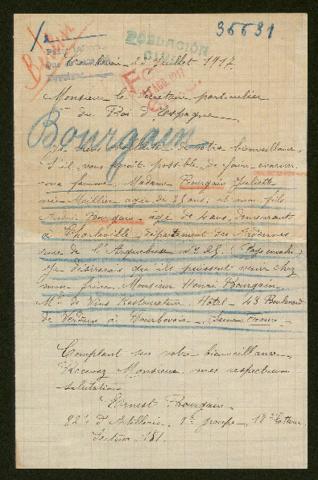 36631
POBLACION
CIVIL
Juillet 1917.
Monsieur le Secrétaire particulier
du Roi d'Espagne
Bourgain
bienveillance
s'il vous serait possible de faire évacuer
ma femme, Madame Bourgain Juliette
née Meillier agée de 28 ans, et mon fils
Bourgain agé de 6 ans, demeurant
à Charleville département des Ardennes
rue de l'Arquebuse n° 25 (Pays envahi)
Je désirerais que ils puissent venir chez
mon frère, Monsieur Henri Bourgain
Md de Vins Restaurateur Hôtel - 43 Boulevard
de Verdun à Courbevoie - Seine France -
Comptant sur votre bienveillance
Recevez Monsieur mes respectueuses
salutations
Ernest Bourgain
82e d'Artillerie 1e groupe 18e Batterie
Secteur 181.